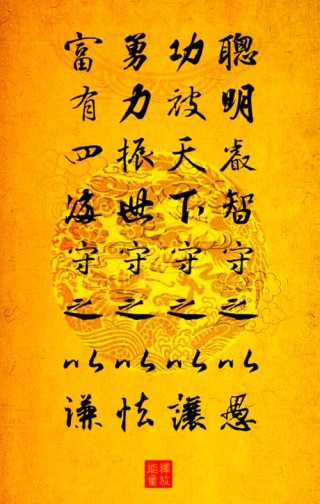 聰明睿智守之以愚
功被天下守之以讓
勇力振世守之以怯
富有四海守之以謙
釋放
能量